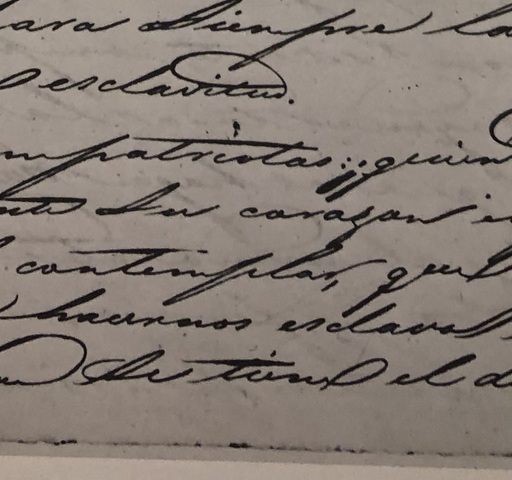 para siempre la
esclavitud.
mpatriotas: ¿quien
nte su corazon
contemplar, que
hacernos esclavos
se tiene el d